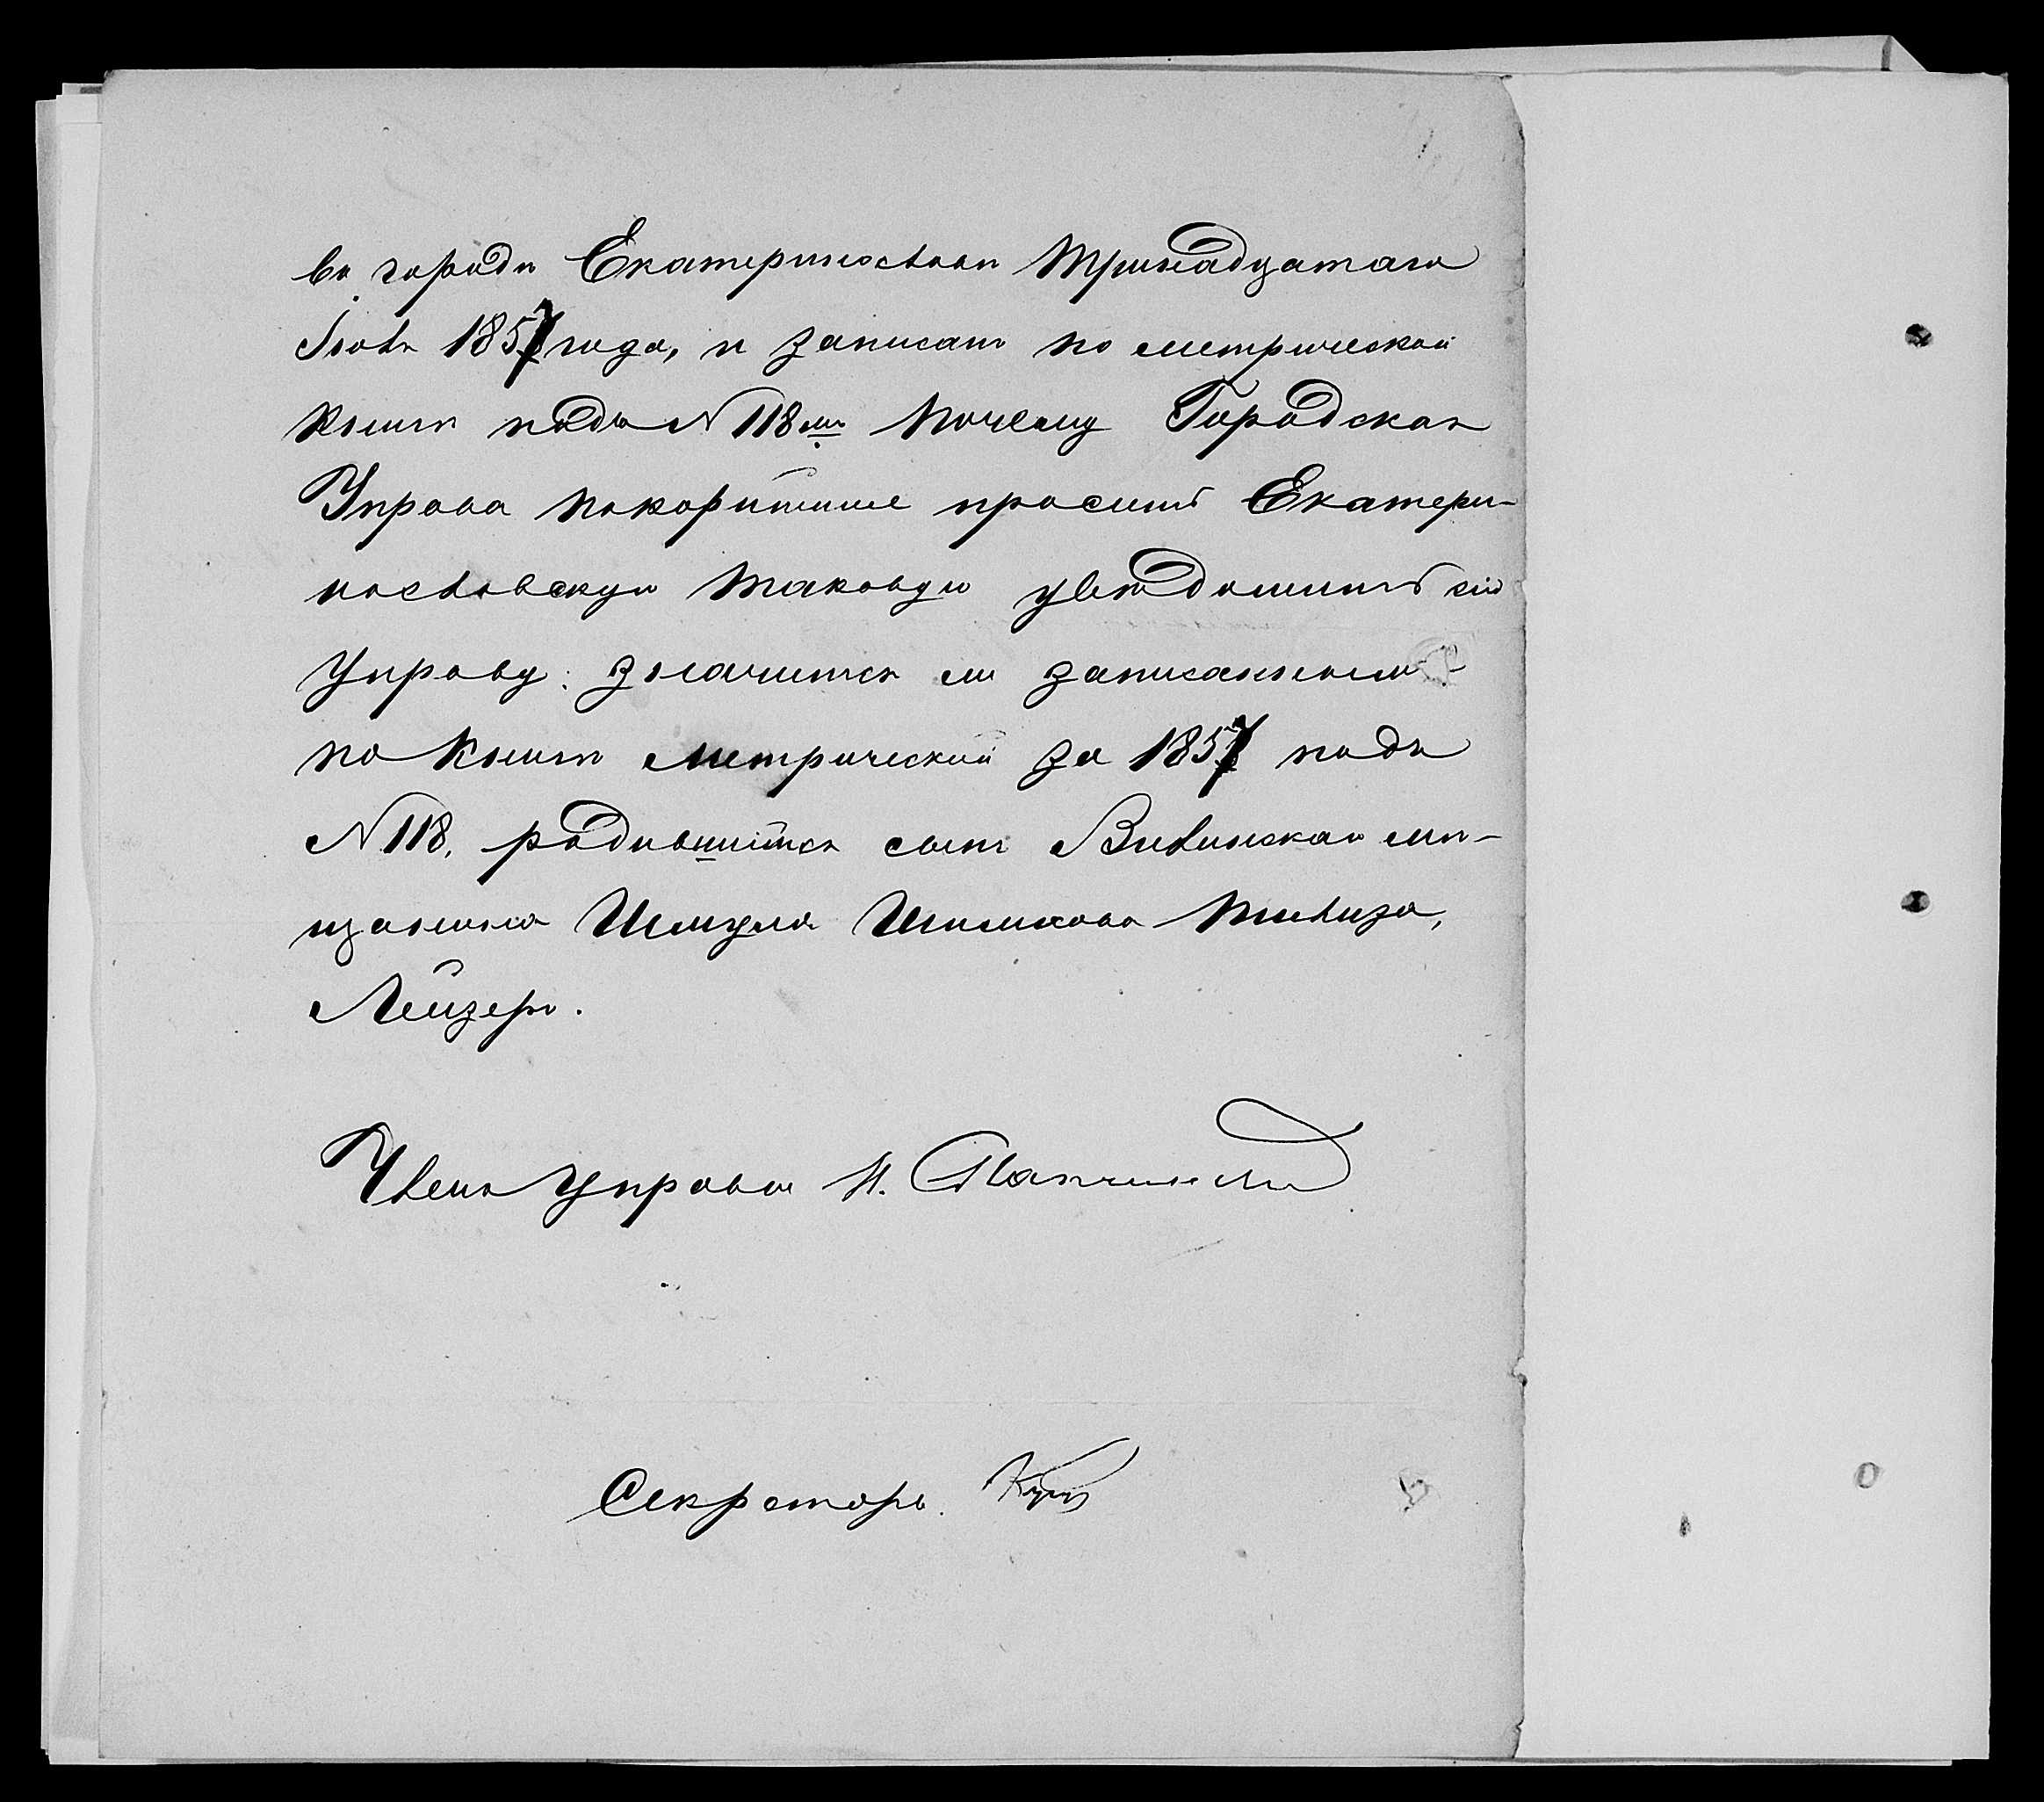 въ городѣ Екатеринославѣ тринадцатаго
Іюля 1857 года, и записанъ по метрической
книгѣ подъ N 118мъ почему Городская
Управа покорнѣйше проситъ Екатери-
нославскую таковую увѣдомить сію
Управу: значится ли записаннымъ
по книгѣ метрической за 1857 подъ
N 118, родившійся сынъ Виленскаго мѣ-
щанина Шмуля
Лейзеръ.
Членъ Управы И.
Секретарь